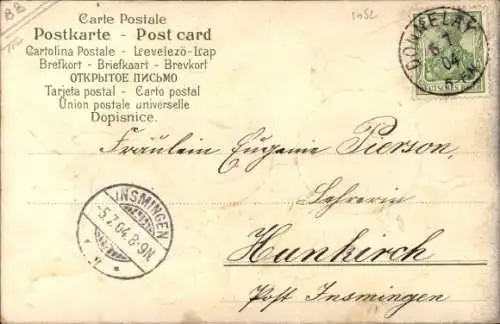 Carte Postale
Postkarte - Post card
Cartolina Postale - Levelező-Lap
Brefkort - Briefkaart - Brevkort
ОТКРЫТОЕ ПИСЬМО
Tarjeta postal - Carto postal
Union postale universelle
Dopisnice.
DONNELAY
5 7
04
5-6N
Fräulein Eugenie Pierson,
Lehrerin
Hunkirch
Post Insmingen
INSMINGEN
-5.7.04.8-9N.